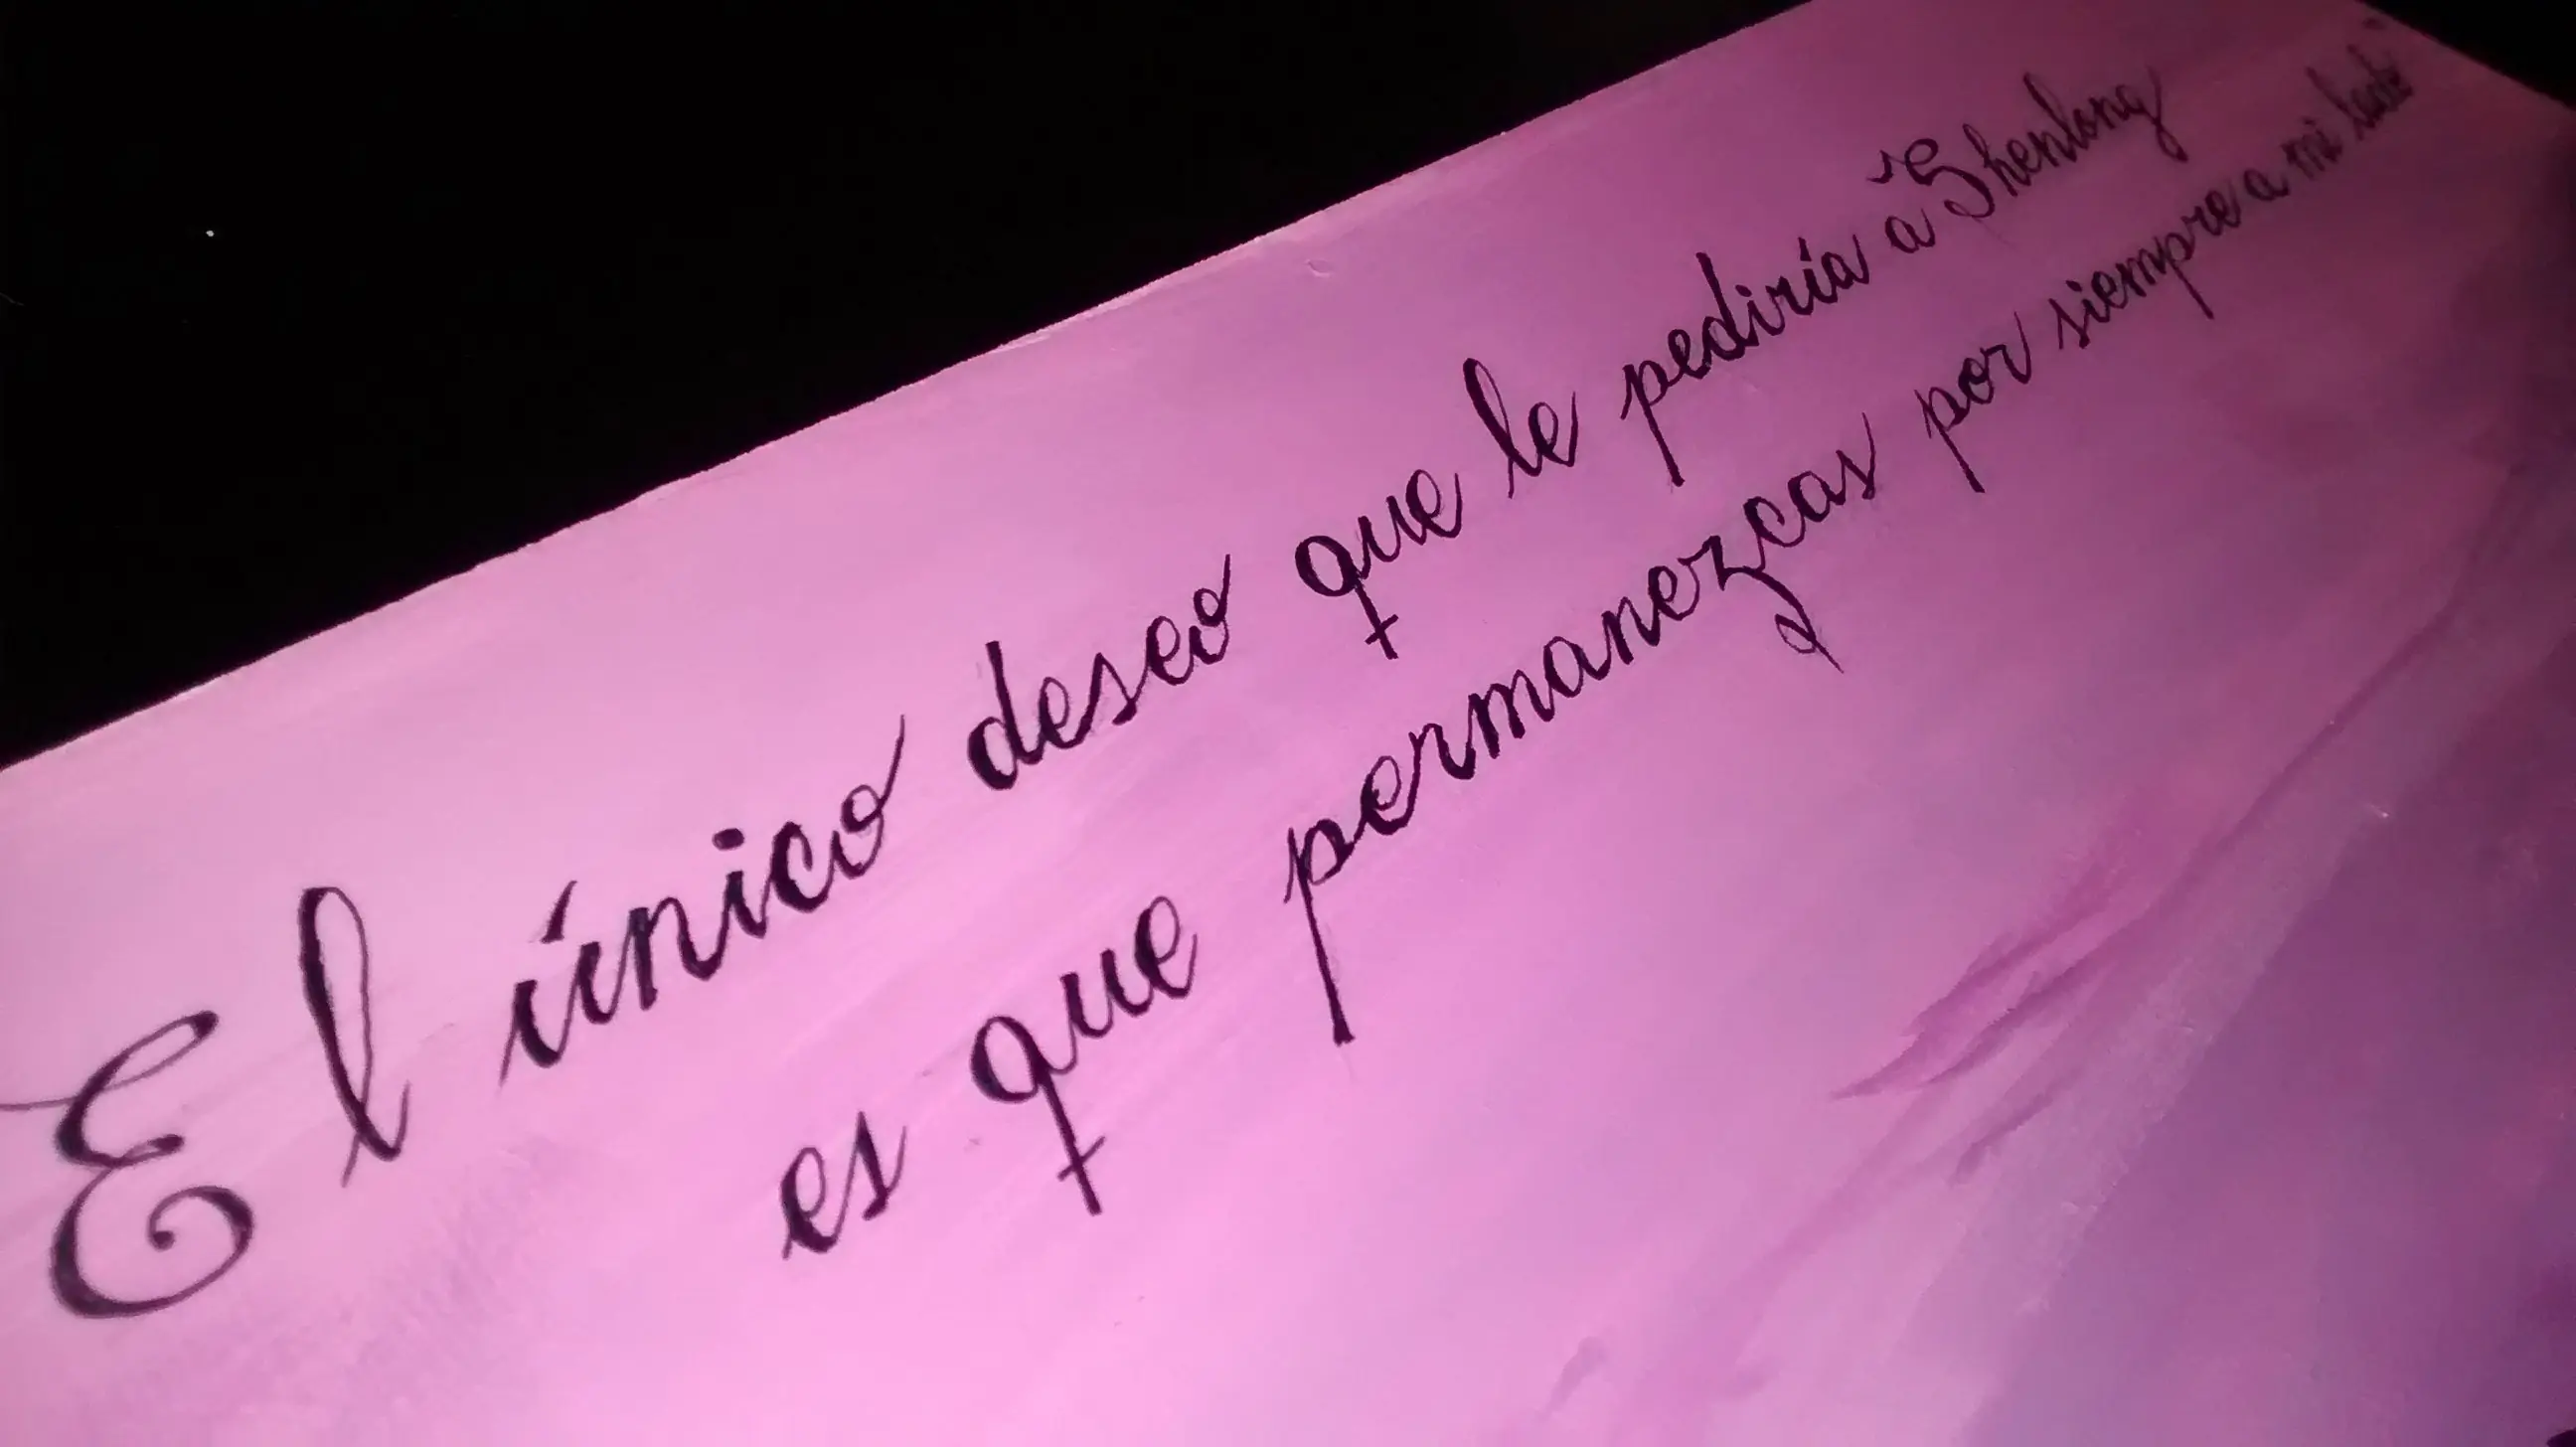 El único deseo que le pediría a Shenlong
es que permanezcas por siempre a mi lado"